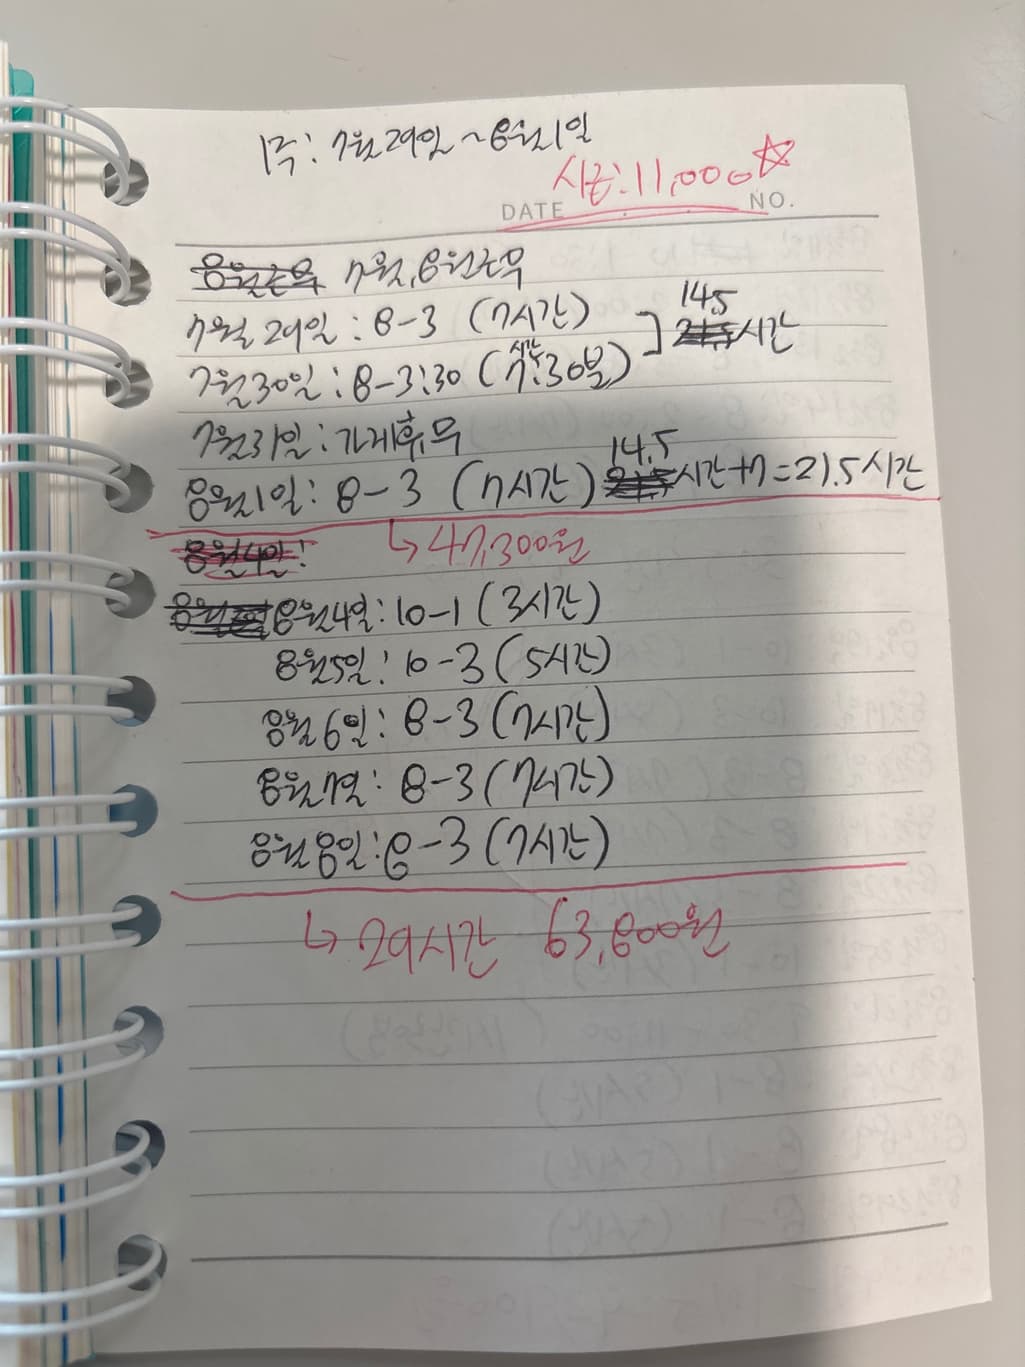 1주: 7월 29일 ~ 8월 1일
시급: 11,000☆
DATE NO.
8월근무 7월, 8월근무
7월 29일: 8-3 (7시간)
14.5
시간
7월30일: 8-3:30 (7시간:30분)
7월31일: 가게휴무
8월1일: 8-3 (7시간) 14.5시간+7=21.5시간
8월4일:
↳ 47,300원
8월4일: 10-1 (3시간)
8월5일: 10-3 (5시간)
8월6일: 8-3 (7시간)
8월7일: 8-3 (7시간)
8월8일: 8-3 (7시간)
↳ 29시간 63,800원